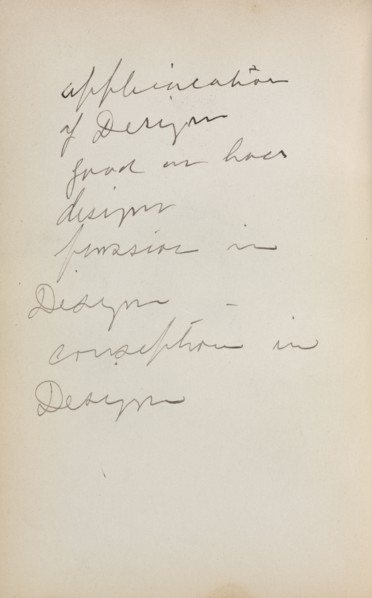 applicication
of Design
good or
design
in
Design -
conseption in
Design